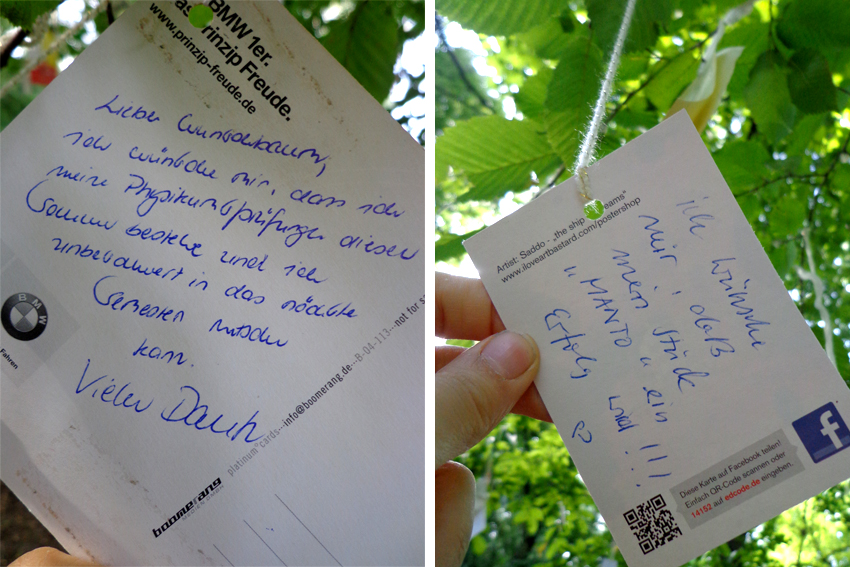 BMW 1er.
as Prinzip Freude.
www.prinzip-freude.de
Lieber Wunschbaum,
ich wünsche mir, dass ich
meine Physikumsprüfungen diesen
Sommer bestehe und ich
unbeschwert in das nächste
Semester rutschen
kann.
Vielen Dank
BMW
Fahren
platinum°cards---info@boomerang.de---B-04-113---not for s
boomerang
Artist: Saddo - „the ship eams"
www.iloveartbastard.com/postershop
ich wünsche
mir, daß
mein Stück
"MANTO" ein
Erfolg wird!!!
f
Diese Karte auf Facebook teilen!
Einfach QR-Code scannen oder
14152 auf edcode.de eingeben.